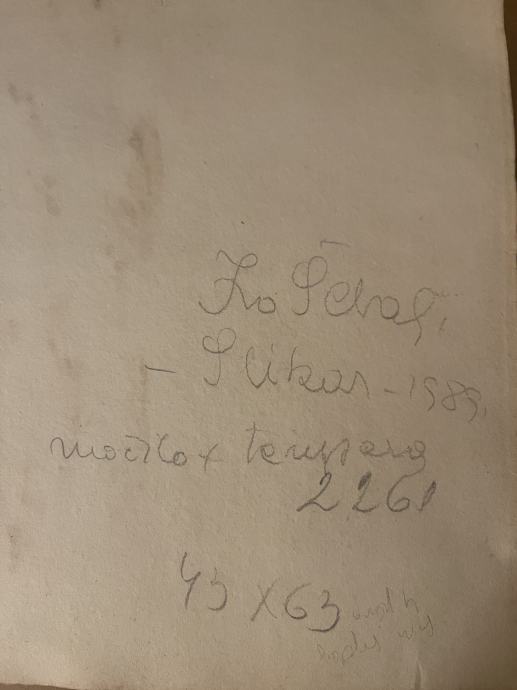 Ivo Šebalj
- Slikar - 1989.
močilo + tempera
2261
43 X 63